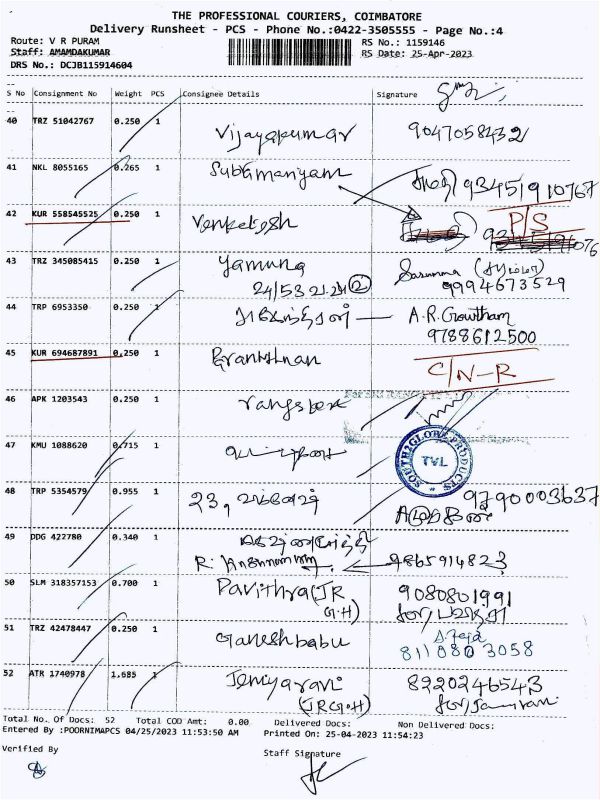 THE PROFESSIONAL COURIERS, COIMBATORE
Delivery Runsheet - PCS - Phone No.:0422-3505555 - Page No.:4
Route: V R PURAM RS No.: 1159146
Staff: AMAMDAKUMAR RS Date: 25-Apr-2023
DRS No.: DCJB115914604
S No Consignment No Weight PCS Consignee Details Signature
40 TRZ 51042767 0.250 1 Vijayakumar 9047058432
41 NKL 8055165 0.265 1 Subramaniyam 93451910767
42 KUR 558545525 0.250 1 Venketesh P/S
43 TRZ 345085415 0.250 1 Yamuna
24/53 9994673529
44 TRP 6953350 0.250 1 A.R.Gowtham
9788612500
45 KUR 694687891 0.250 1 C/N-R
46 APK 1203543 0.250 1
47 KMU 1088620 0.715 1 SOUTH2GLOBE PRODUCTS
48 TRP 5354579 0.955 1 23, 9790003637
49 DDG 422780 0.340 1
R. 9865914823
50 SLM 318357153 0.700 1 Pavithra (JR 9080801991
G.H) for/
51 TRZ 42478447 0.250 1 Ganeshbabu 8110803058
52 ATR 1740978 1.685 1 Jeniyaravi 8220246543
(JRG.H) for/
Total No. Of Docs: 52 Total COD Amt: 0.00 Delivered Docs: Non Delivered Docs:
Entered By :POORNIMAPCS 04/25/2023 11:53:50 AM Printed On: 25-04-2023 11:54:23
Verified By Staff Signature